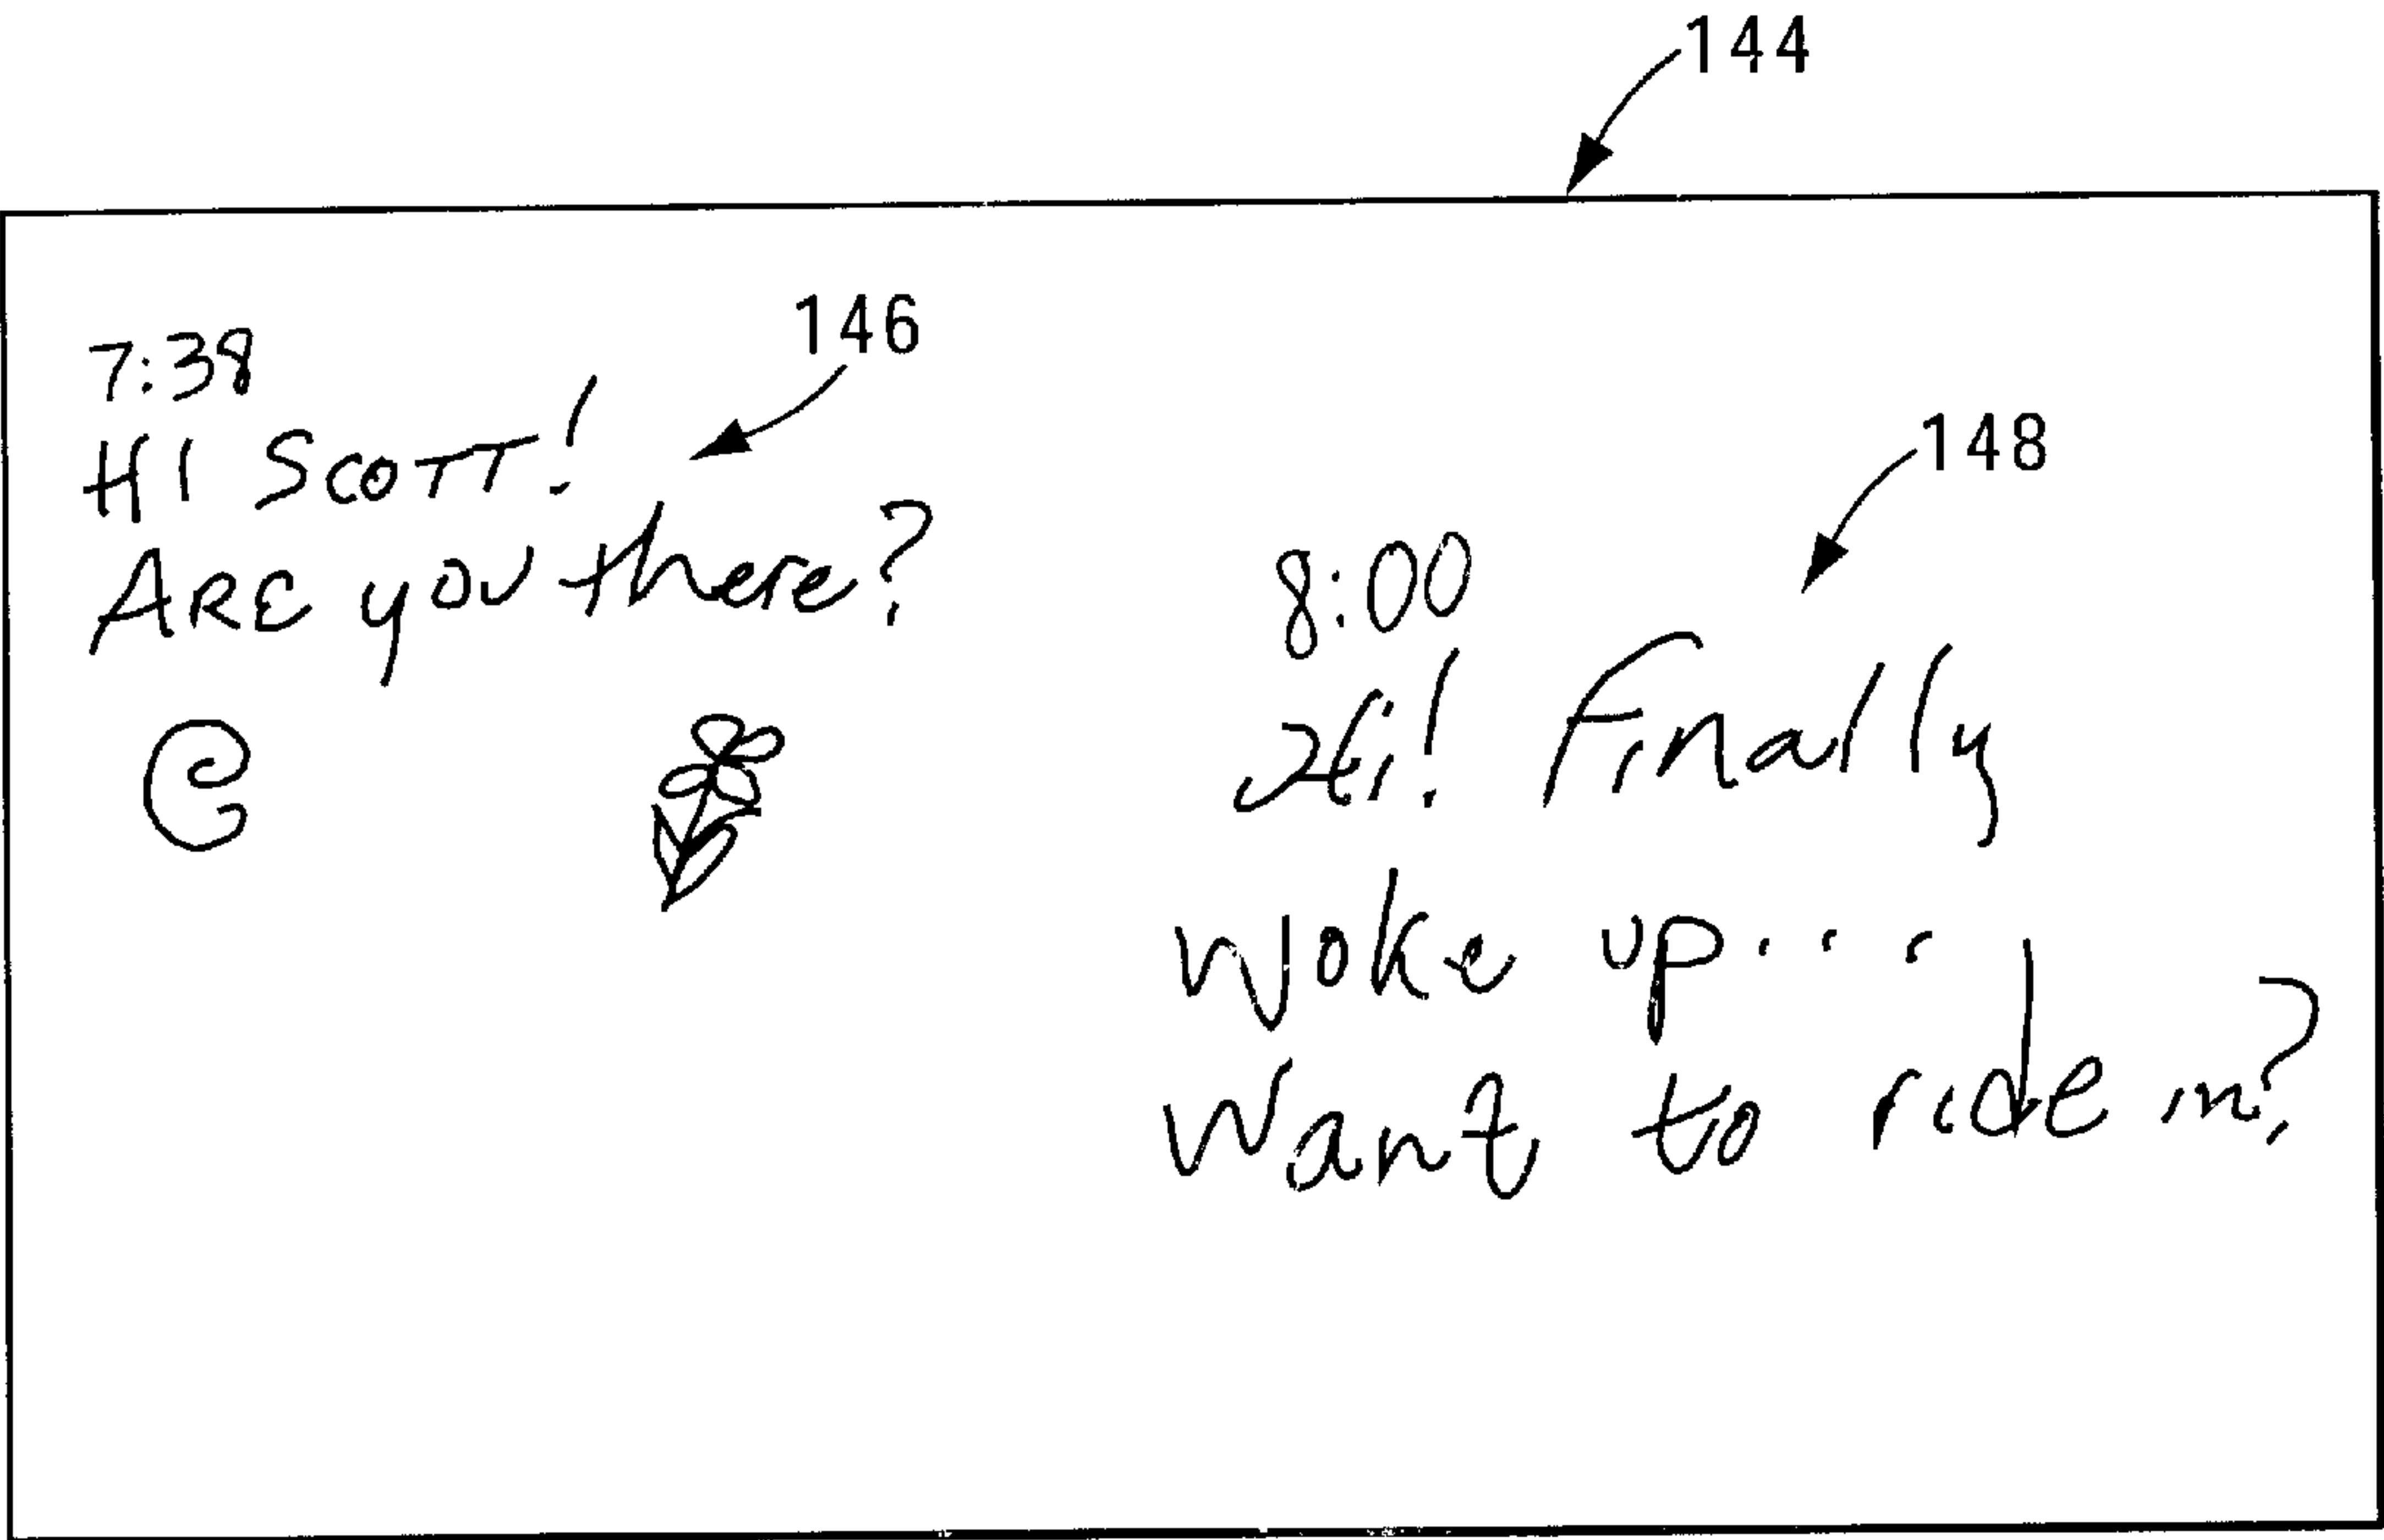 144
146
7:38
HI SCOTT!
ARE you there?
148
8:00
Hi! Finally
woke up...
Want to ride in?